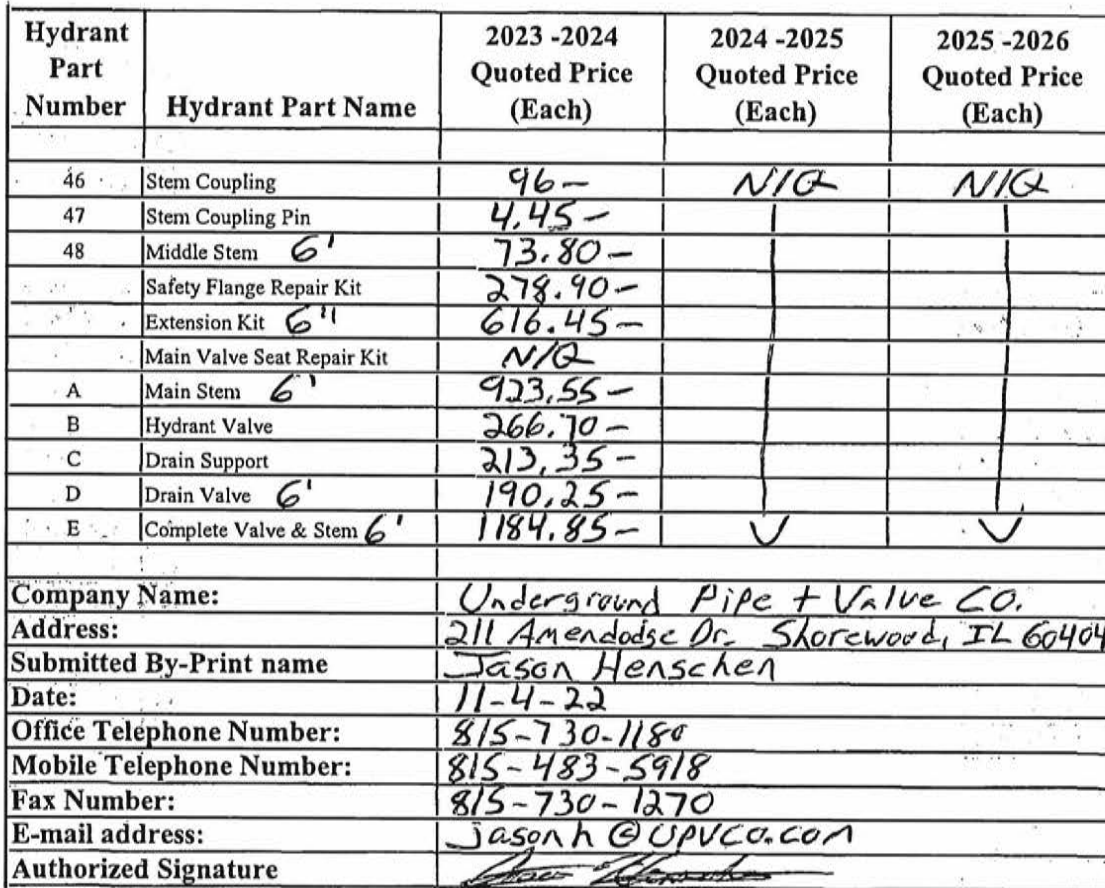 Hydrant Part Number Hydrant Part Name 2023 -2024 Quoted Price (Each) 2024 -2025 Quoted Price (Each) 2025 -2026 Quoted Price (Each)
46 Stem Coupling 96- N/Q N/Q
47 Stem Coupling Pin 4.45-
48 Middle Stem 6' 73.80-
Safety Flange Repair Kit 278.90-
Extension Kit 6" 616.45-
Main Valve Seat Repair Kit N/Q
A Main Stem 6' 923.55-
B Hydrant Valve 266.70-
C Drain Support 213.35-
D Drain Valve 6' 190.25-
E Complete Valve & Stem 6' 1184.85-
Company Name: Underground Pipe + Valve CO.
Address: 211 Amendodge Dr. Shorewood, IL 60404
Submitted By-Print name Jason Henschen
Date: 11-4-22
Office Telephone Number: 815-730-1180
Mobile Telephone Number: 815-483-5918
Fax Number: 815-730-1270
E-mail address: jasonh@UPVCO.COM
Authorized Signature